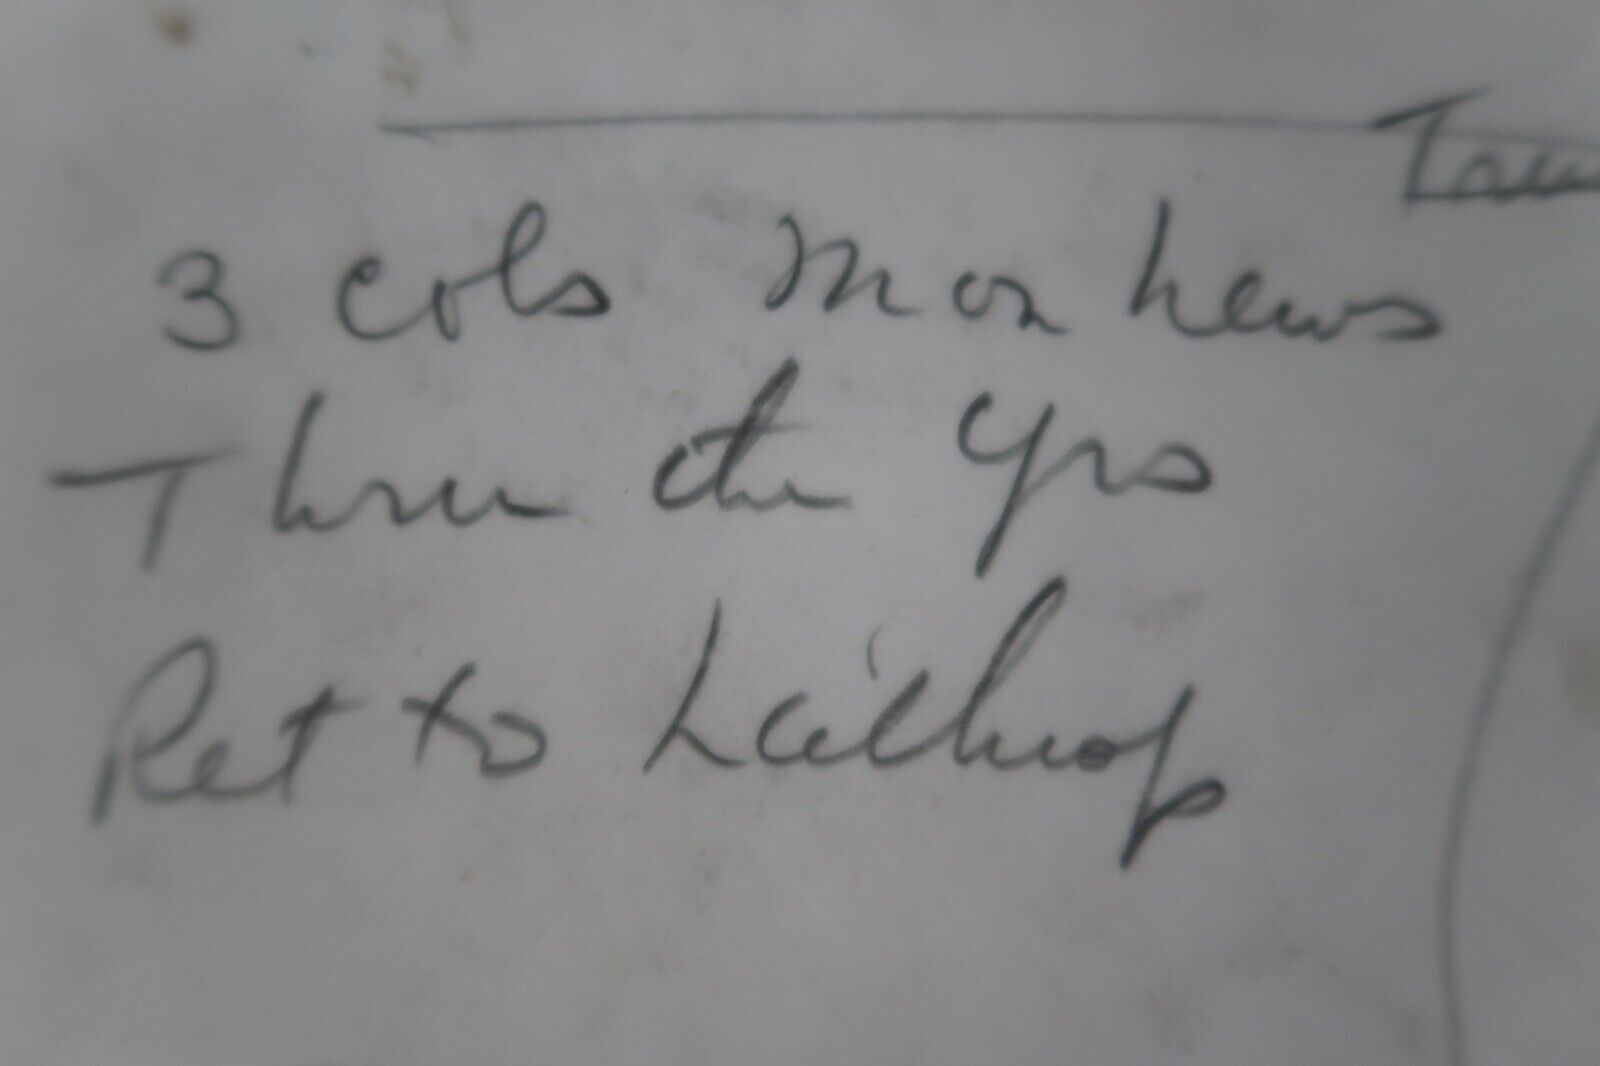 3 cols Mon News
Thru the Yrs
Ret to Lathrop